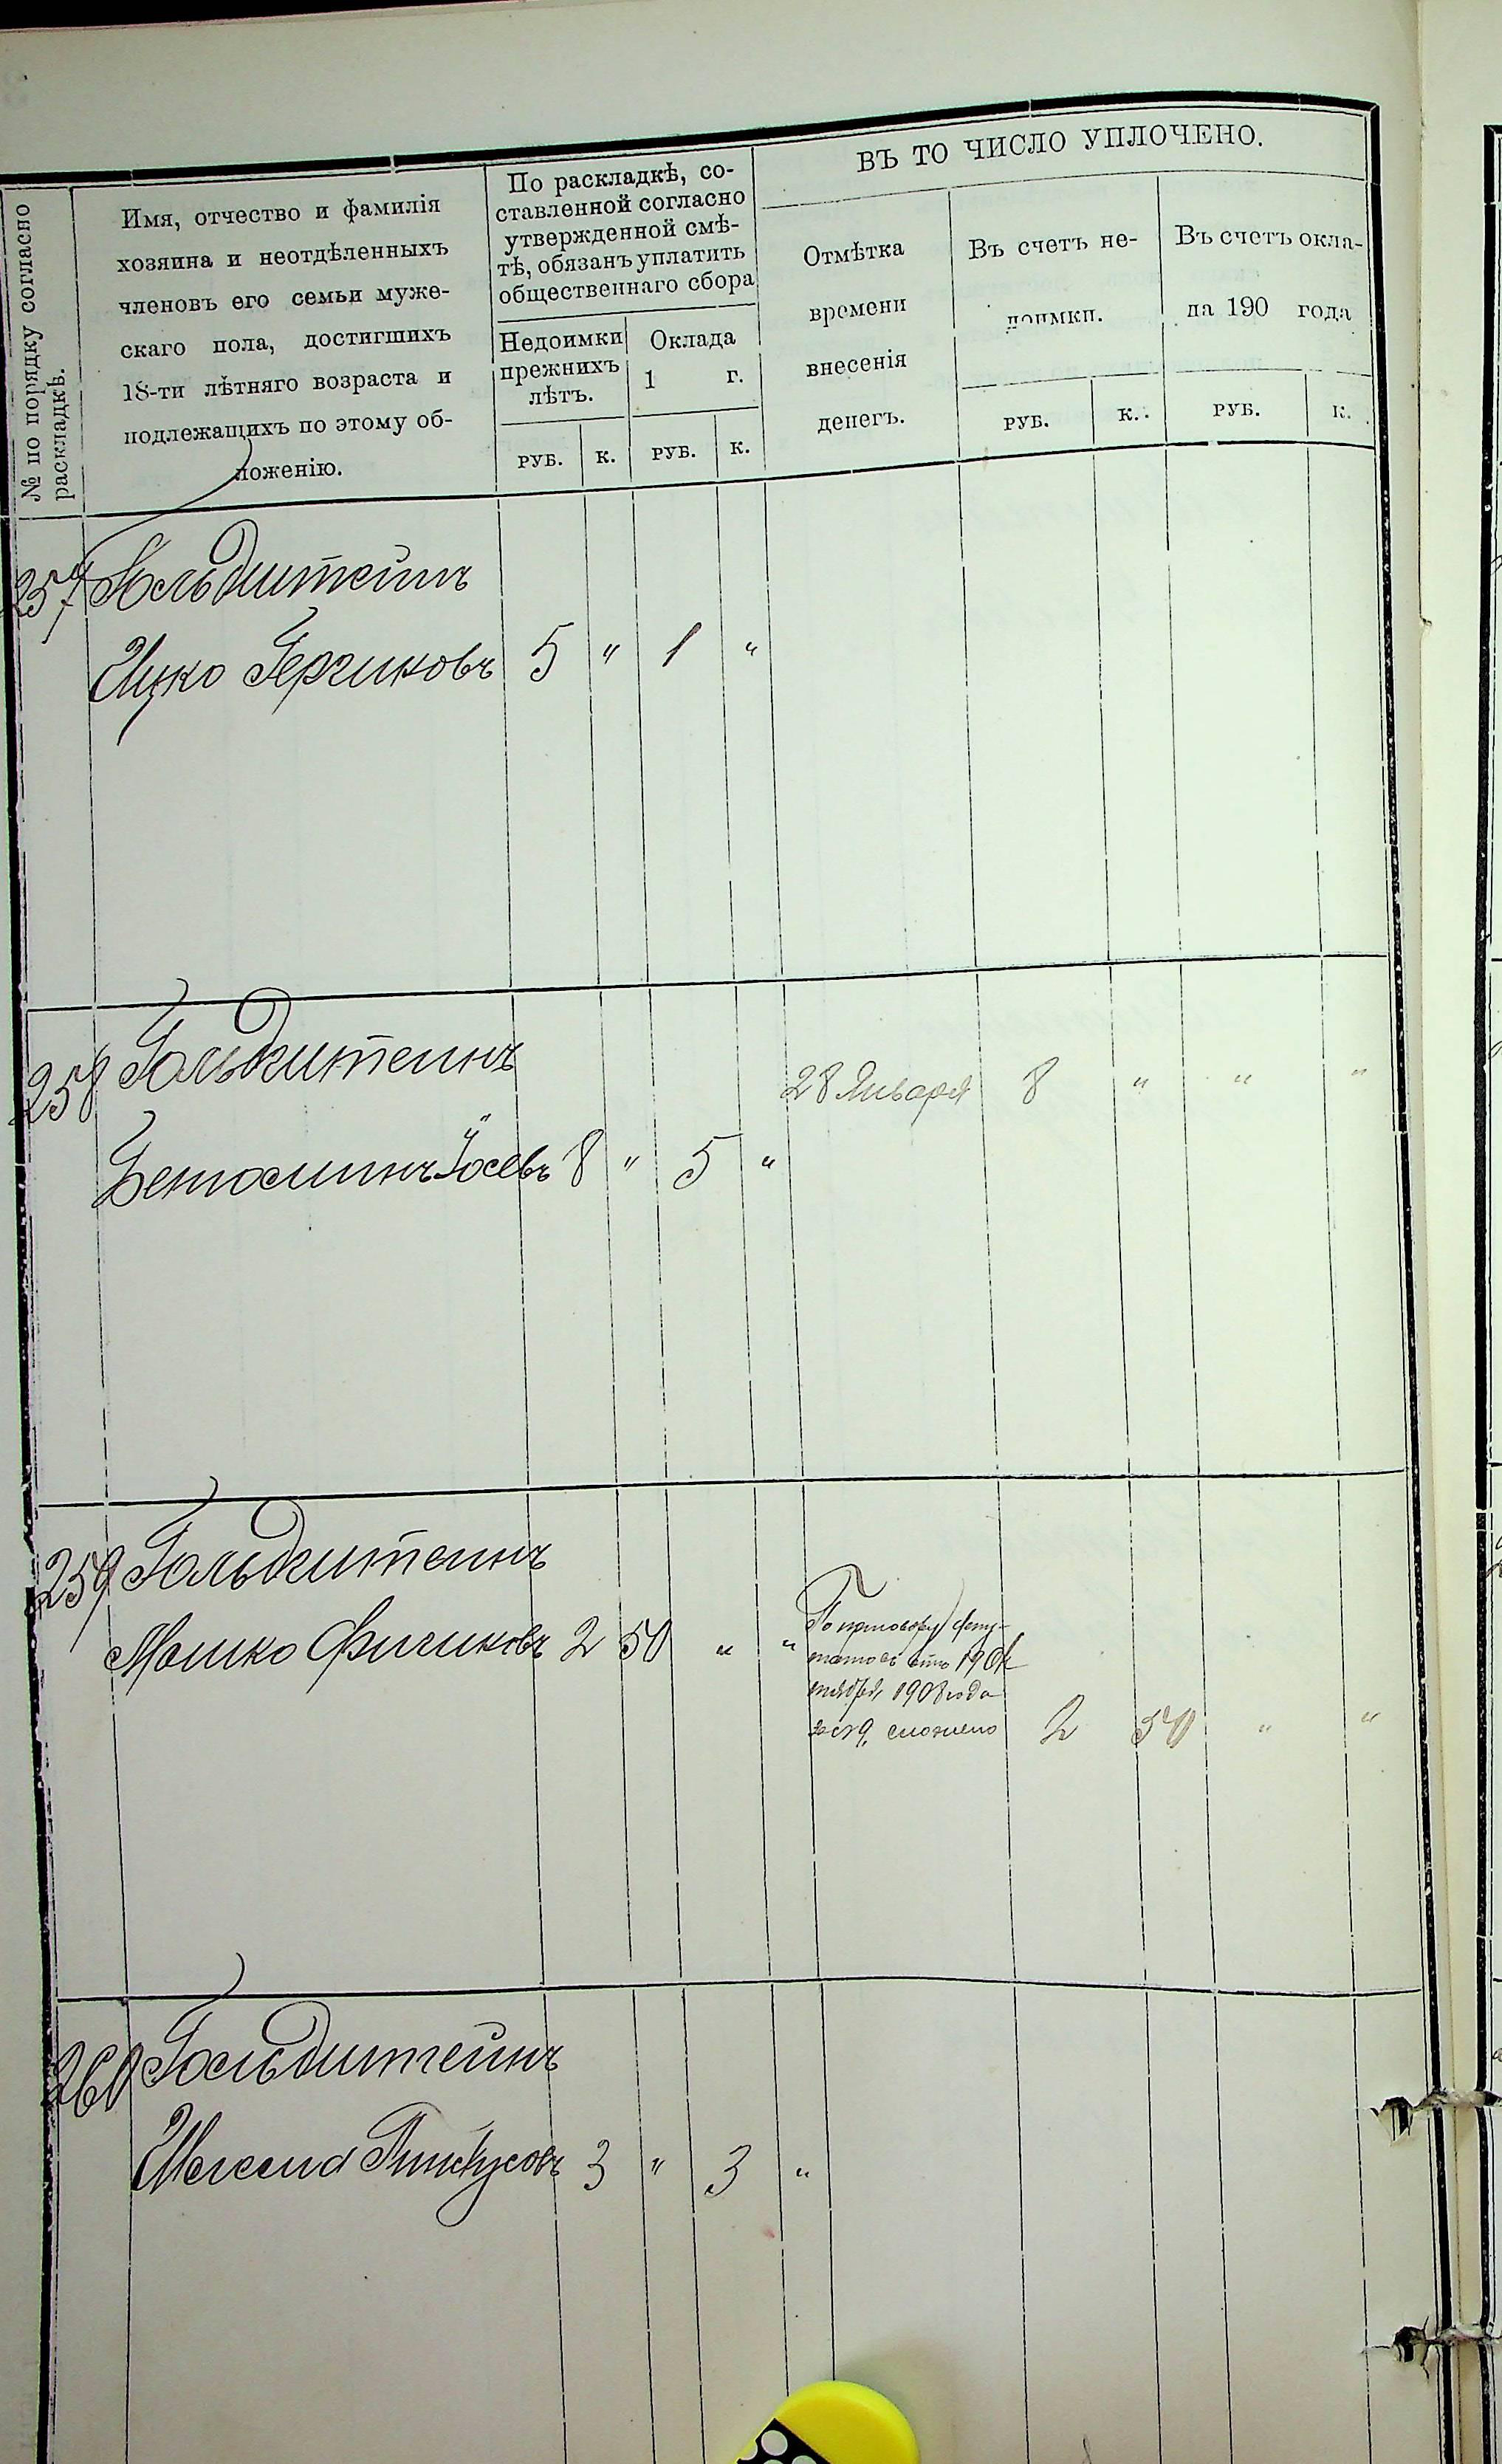 № по порядку согласно
раскладкѣ.
Имя, отчество и фамилія
хозяина и неотдѣленныхъ
членовъ его семьи муже-
скаго пола, достигшихъ
18-ти лѣтняго возраста и
подлежащихъ по этому об-
ложенію.
По раскладкѣ, со-
ставленной согласно
утвержденной смѣ-
тѣ, обязанъ уплатить
общественнаго сбора
Недоимки
прежнихъ
лѣтъ.
Оклада
1 г.
РУБ. К. РУБ. К.
ВЪ ТО ЧИСЛО УПЛОЧЕНО.
Отмѣтка
времени
внесенія
денегъ.
Въ счетъ не-
доимки.
РУБ. К.
Въ счетъ окла-
да 190 года
РУБ. К.
257 Гольдштейнъ
Ицко Герчиковъ 5 " 1 "
258 Гольдштейнъ 28 Января 8 " " "
Беньоминъ Іосевъ 8 " 5 "
259 Гольдштейнъ
Мошко Фишиковъ 2 50 " "
По приговору депу-
татовъ отъ 19 Ок
тября 1908 года
за № 9, сложено 2 50 " "
260 Гольдштейнъ
Пинкусовъ 3 " 3 "